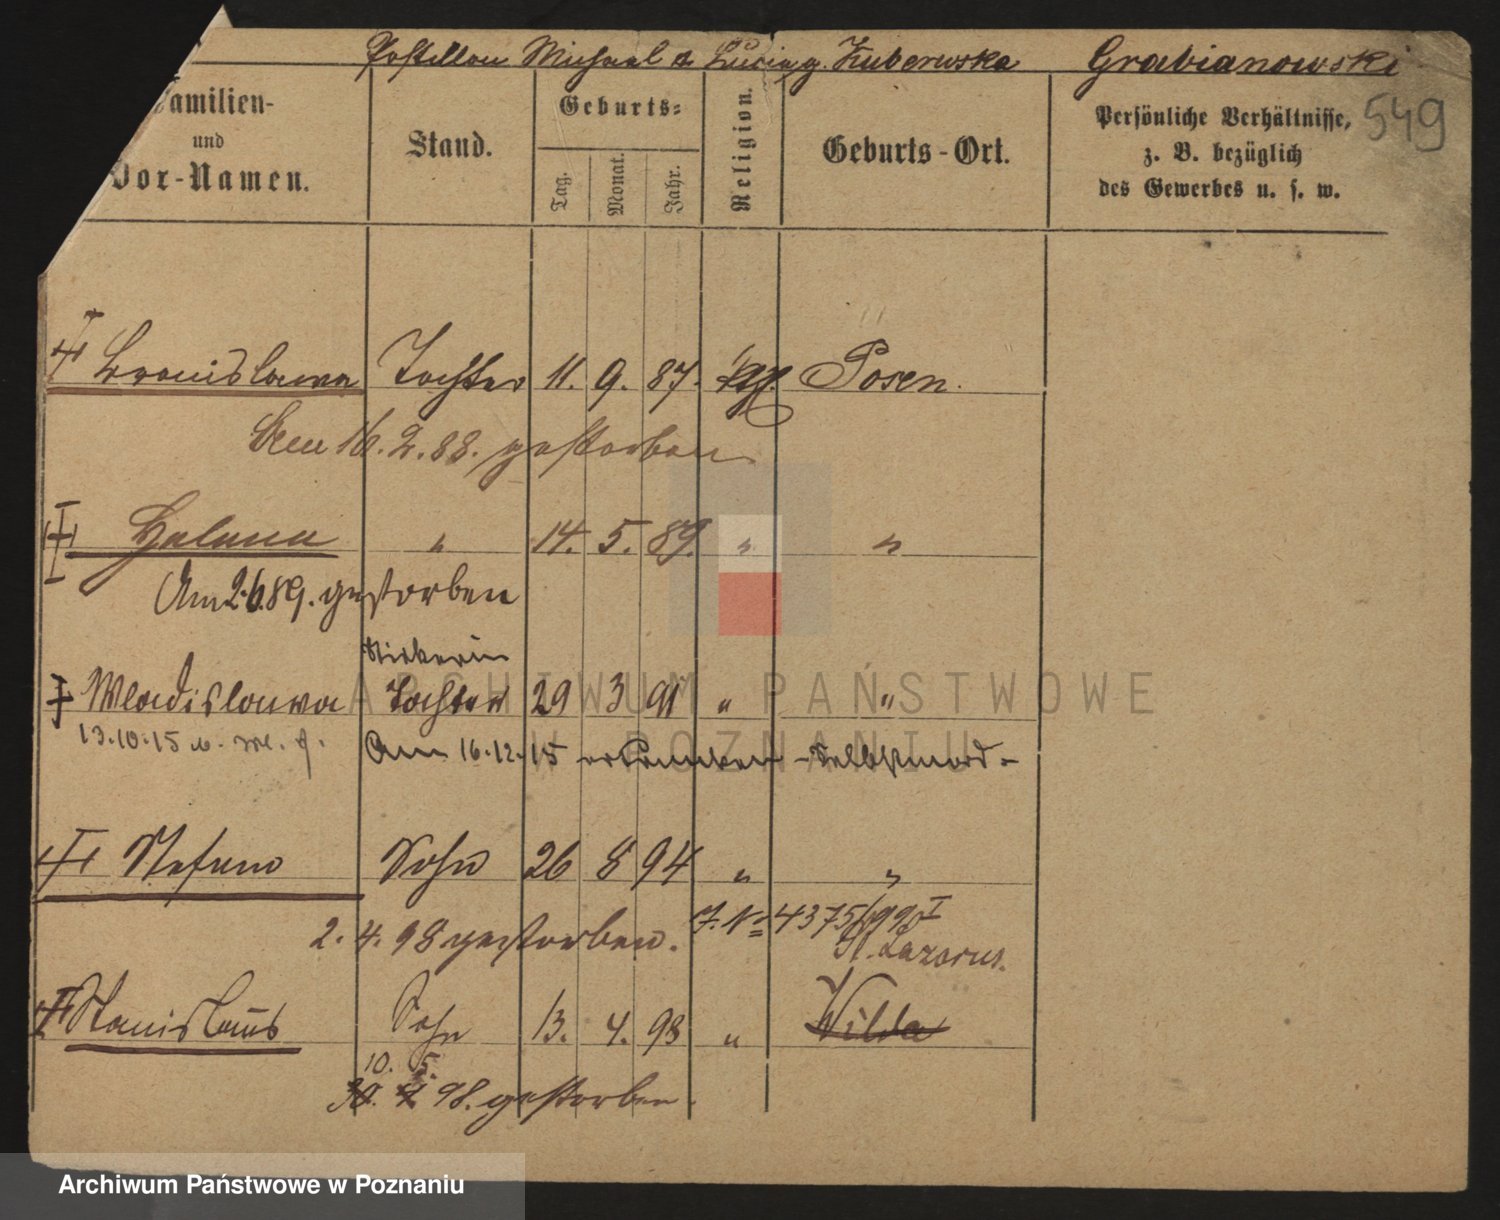 Postillon Michael & Lucia g. Kuberwska Grabianowski
549
Familien-
und
Vor-Namen.
Stand.
Geburts=
Tag.
Monat.
Jahr.
Religion.
Geburts-Ort.
Persönliche Verhältnisse,
z. B. bezüglich
des Gewerbes u. s. w.
Bronislawa Tochter 11. 9. 87. kath. Posen.
Am 16.2.88. gestorben
Helena " 14. 5. 89. " "
Am 2.6.89. gestorben
Wladislawa Tochter 29 3 91 " "
13.10.15
Am 16.12.15 ertrunken - Selbstmord -
Stefan Sohn 26 8 94 " "
2. 4. 98 gestorben.
J. No 4375/99 I
St. Lazarus.
Stanislaus Sohn 13. 4. 98 " Wilda
10. 5.
30. 4 98. gestorben.
ARCHIWUM PAŃSTWOWE
W POZNANIU
Archiwum Państwowe w Poznaniu